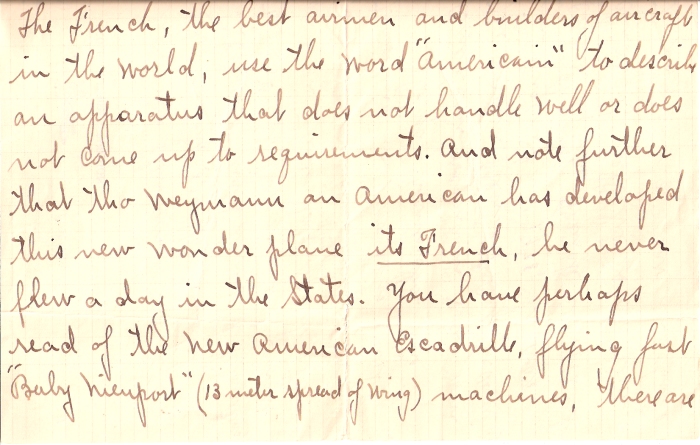 The French, the best airmen and builders of aircraft
in the world, use the word "Americain" to describe
an apparatus that does not handle well or does
not come up to requirements. And note further
that tho Weymann an American has developed
this new wonder plane its French, he never
flew a day in the States. You have perhaps
read of the new American Escadrille, flying fast
"Baby Nieuport" (13 meter spread of wing) machines, there are